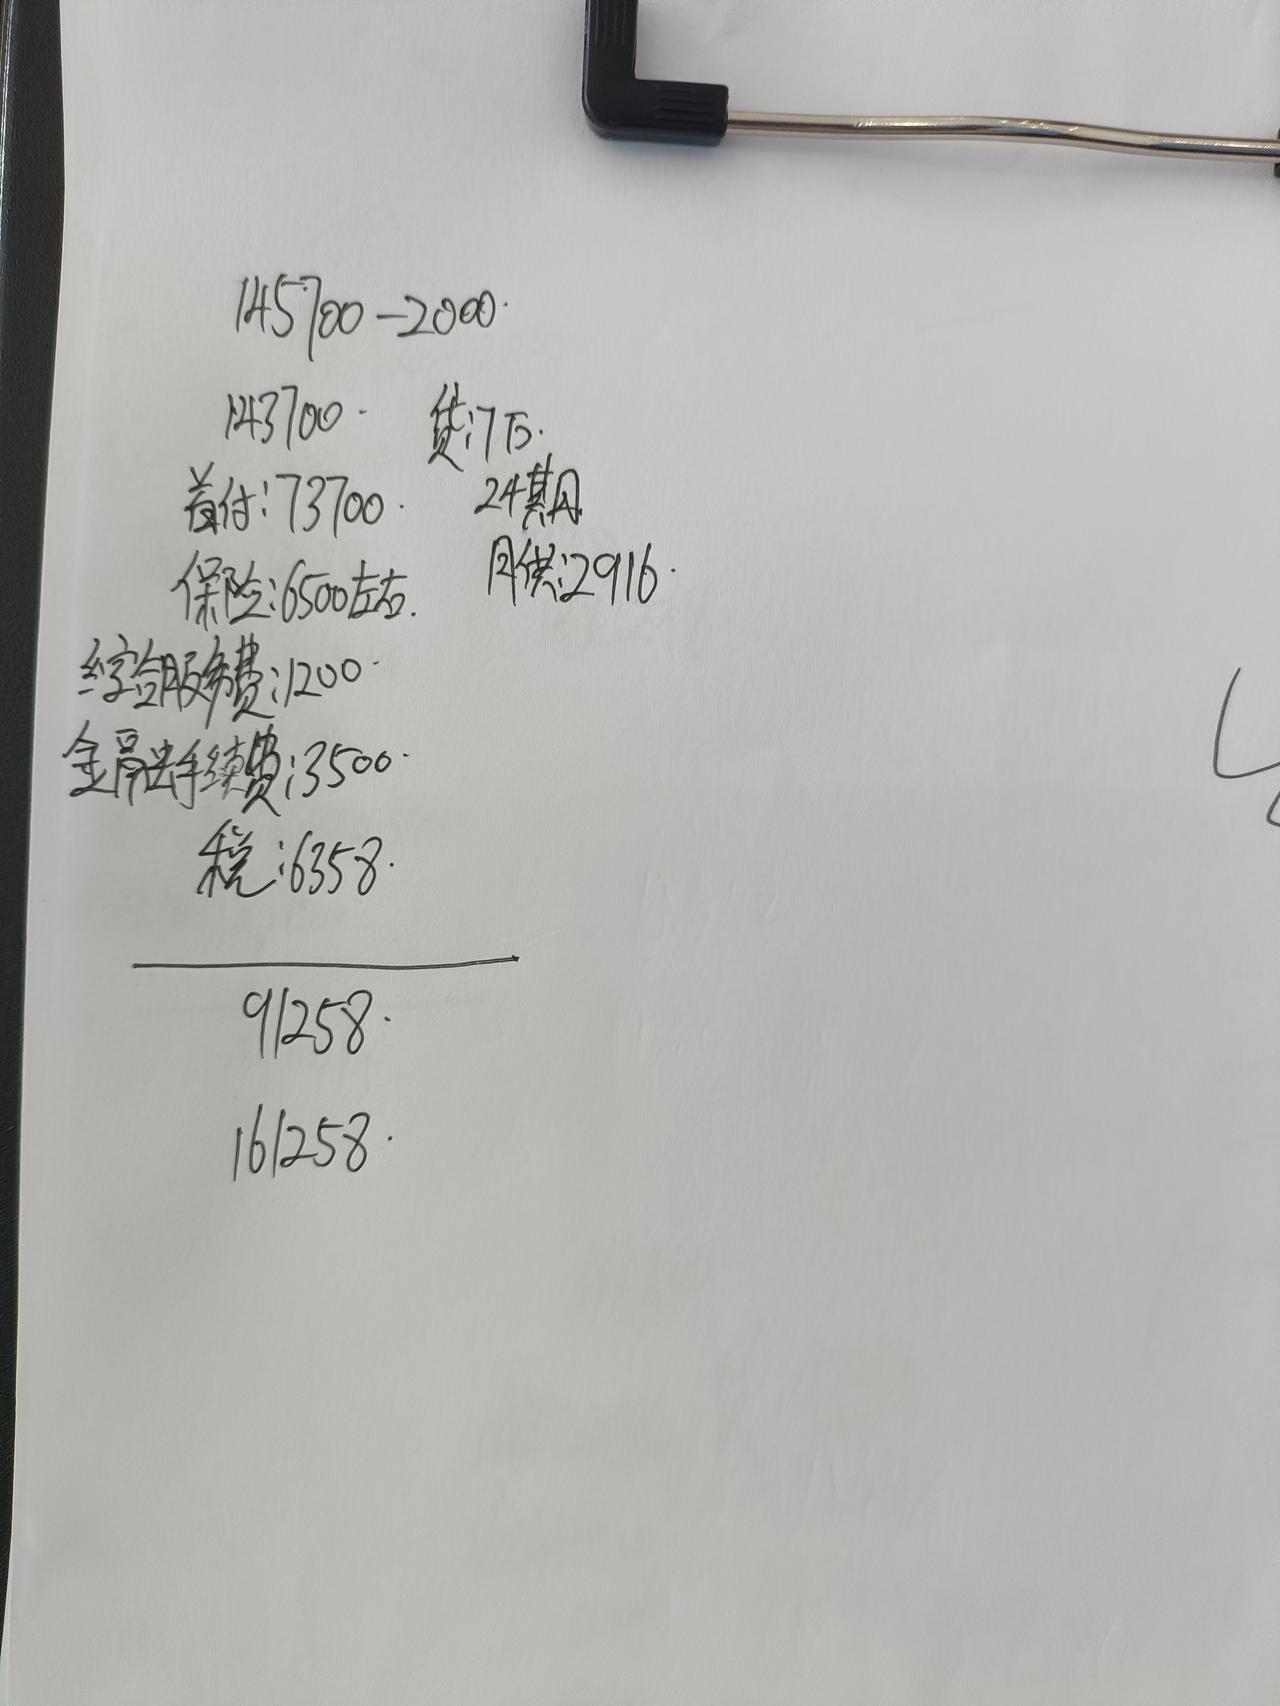 145700-2000.
143700.
贷:7万.
首付:73700.
24期月
保险:6500左右.
月供:2916.
综合服务费:1200.
金融手续费:3500.
税:6358.
91258.
161258.